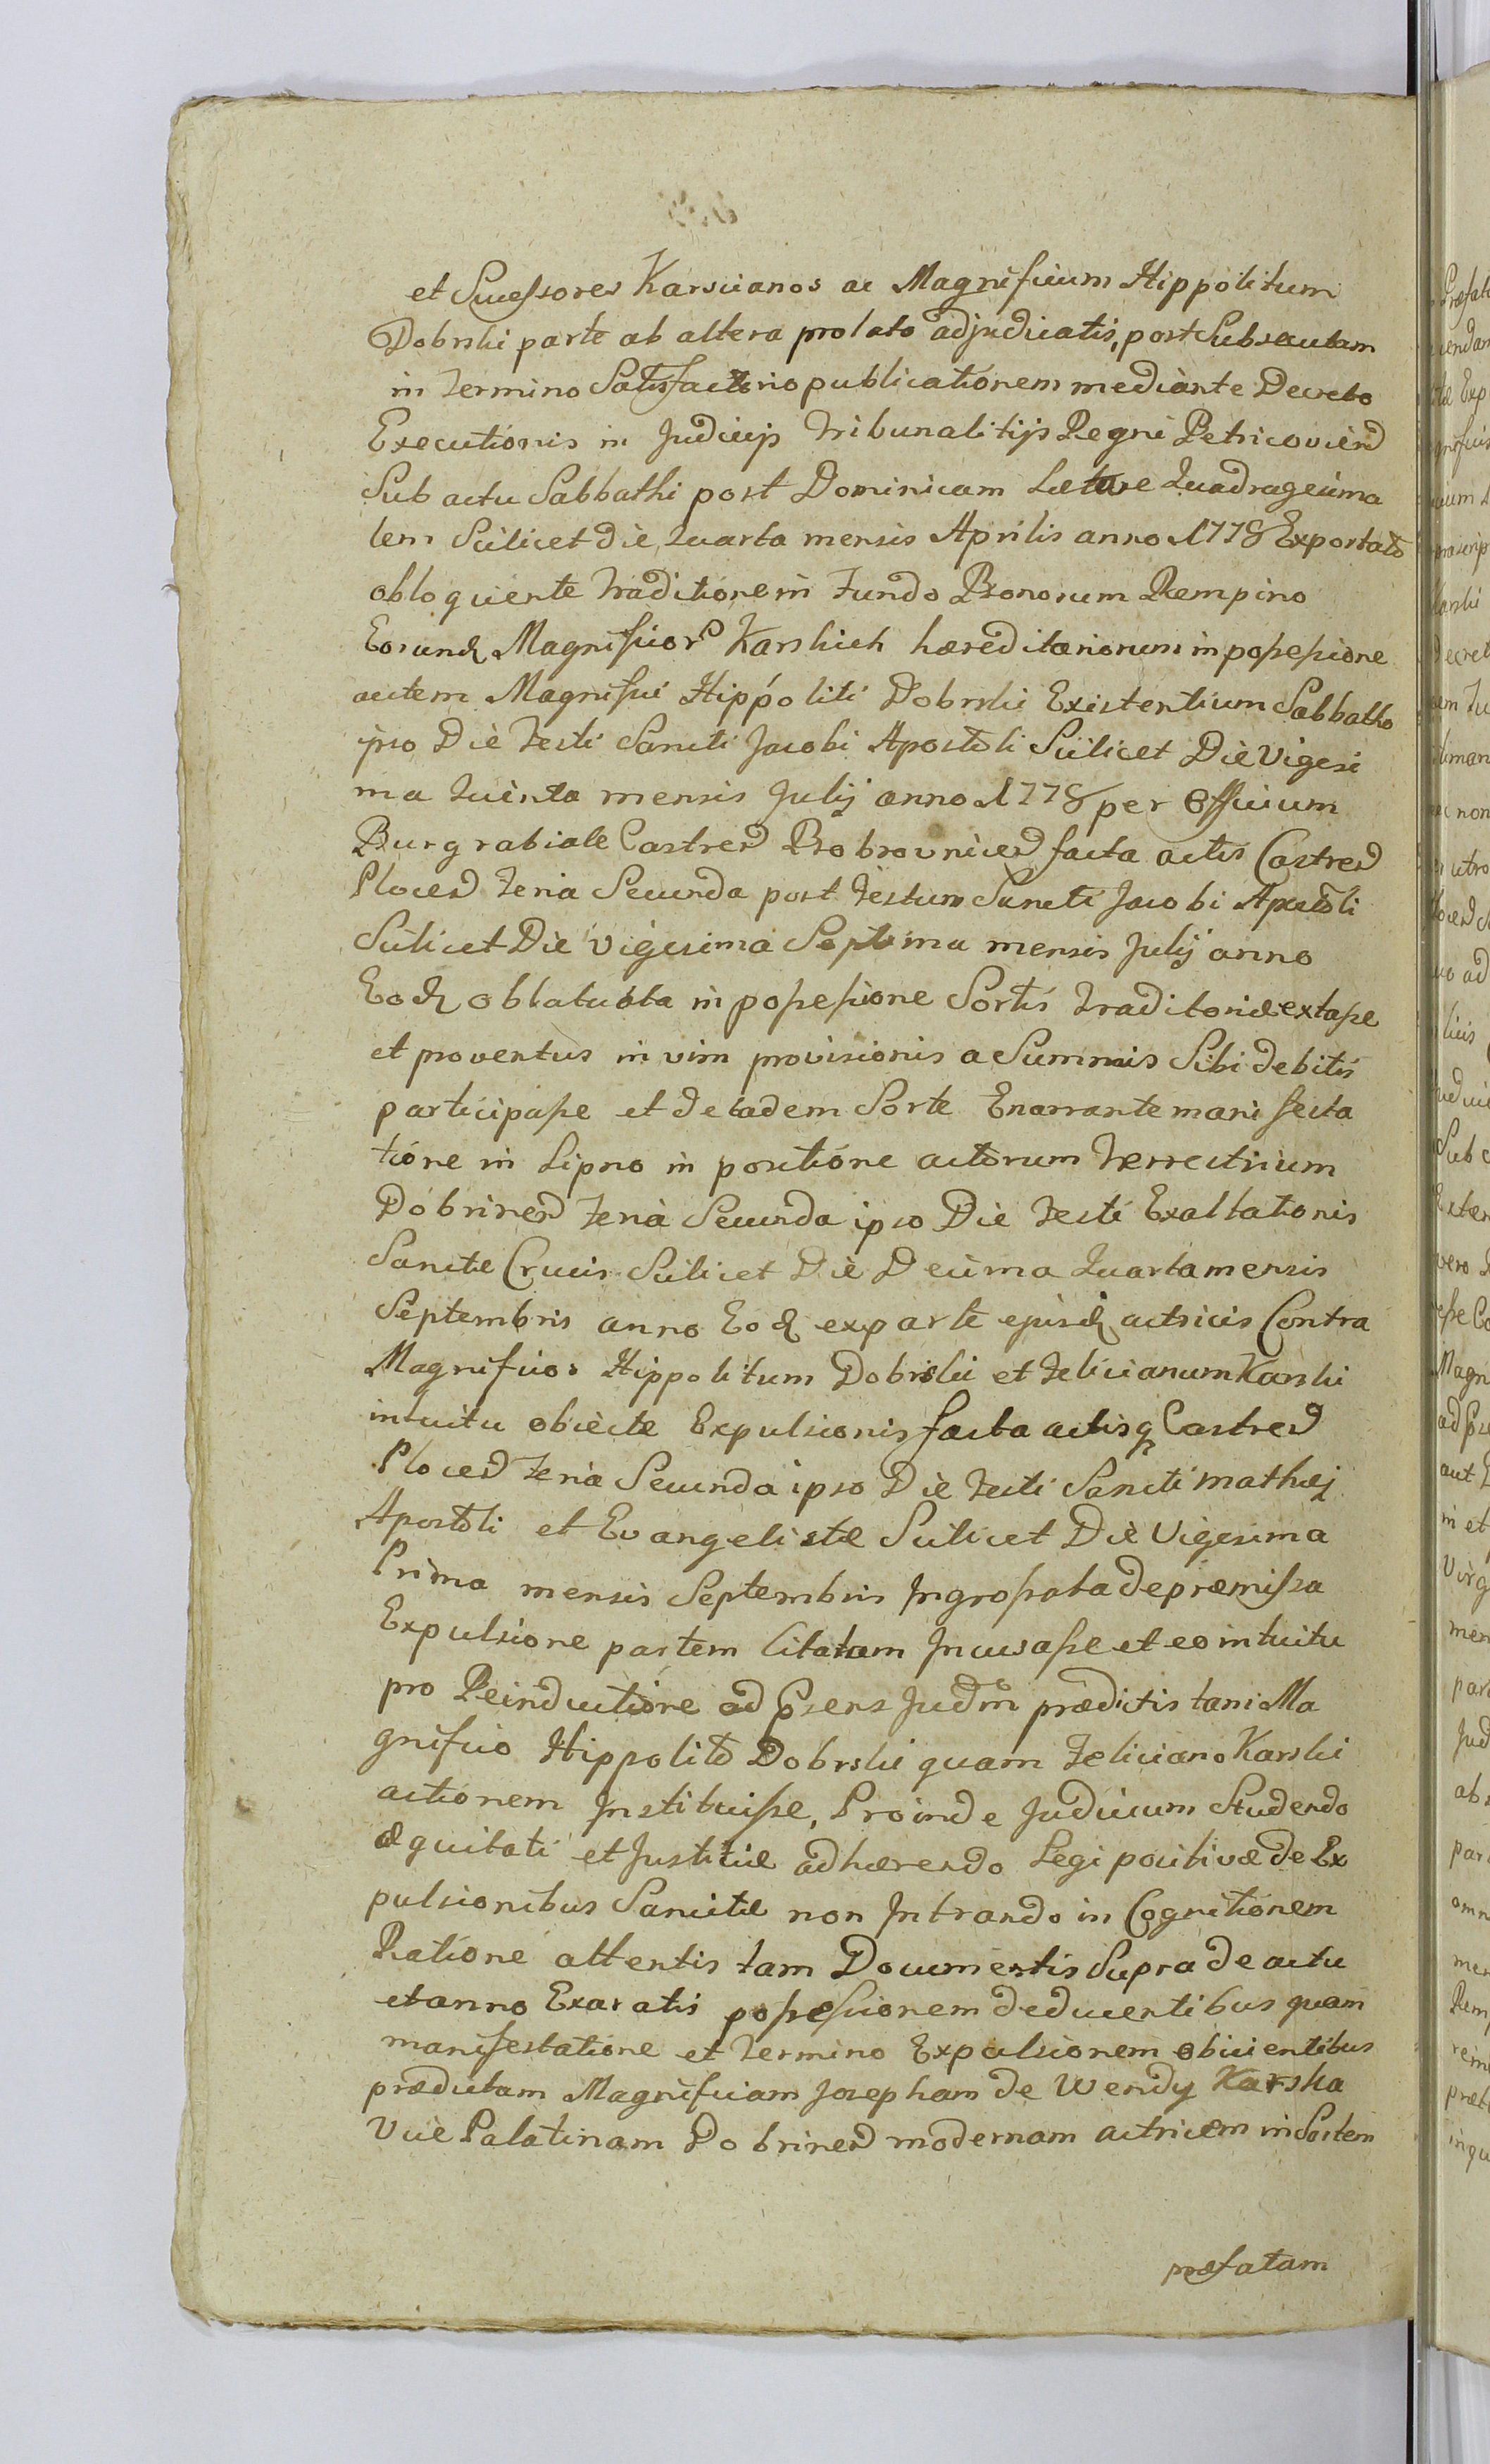 et Sucessores Karscianos ac Magnificum Hippolitum
Dobrski parte ab altera prolato adjudicatis, post Subsecutam
in Termino Satisfactorio publicationem mediante Decreto
Executionis in Judicijs Tribunalitijs Regni Petricovien
Sub actu Sabbathi post Dominicam Lætare Quadragesima
lem Scilicet die Quarta mensis Aprilis anno 1778 Exportato
obloquente Traditionem Fundo Bonorum Rempino
Eorund Magnificor Karskich hæreditariorum in possessione
autem Magnifici Hippoliti Dobrski Existentium Sabbatho
ipso Die Festi Sancti Jacobi Apostoli Scilicet Die Vigesi
ma Quinta mensis Julij anno 1778 per Officium
Burgrabiale Castren Bobrovnicen facta actis Castren
Plocen Feria Secunda post Festum Sancti Jacobi Apostoli
Scilicet Die Vigesima Septima mensis Julij anno
Eod oblatuata in possessione Sortis Traditoriæ extasse
et proventus in vim provisionis a Summis Sibi debitis
participasse et de eadem Sorte Enarrante manifesta
tione in Lipno in positione actorum Terrestrium
Dobrinen Feria Secunda ipso Die Festi Exaltationis
Sanctæ Crucis Scilicet Die Decima Quarta mensis
Septembris anno Eod ex parte ejusd actricis Contra
Magnificos Hippolitum Dobrski et Felicianum Karski
intuitu obiectæ Expulsionis facta actisq Castren
Plocen Feria Secunda ipso Die Festi Sancti Mathæj
Apostoli et Evangelistæ Scilicet Die Vigesima
Prima mensis Septembris Ingrossata de præmissa
Expulsione partem Citatam Incusasse et eo intuitu
pro Reinductione ad Psens Judm prædictis tam Ma
gnifico Hippolito Dobrski quam Feliciano Karski
actionem Instituisse, Proinde Judicium Studendo
æquitati et Justitiæ adhærendo Legi positivæ de Ex
pulsionibus Sancitæ non Intrando in Cognitionem
Ratione attentis tam Documentis Supra de actu
et anno Exaratis possessionem deducentibus quam
manifestatione et Termino Expulsionem obiicientibus
prædictam Magnificam Josepham de Wendy Karska
Vice Palatinam Dobrinen modernam actricem in Sortem
præfatam